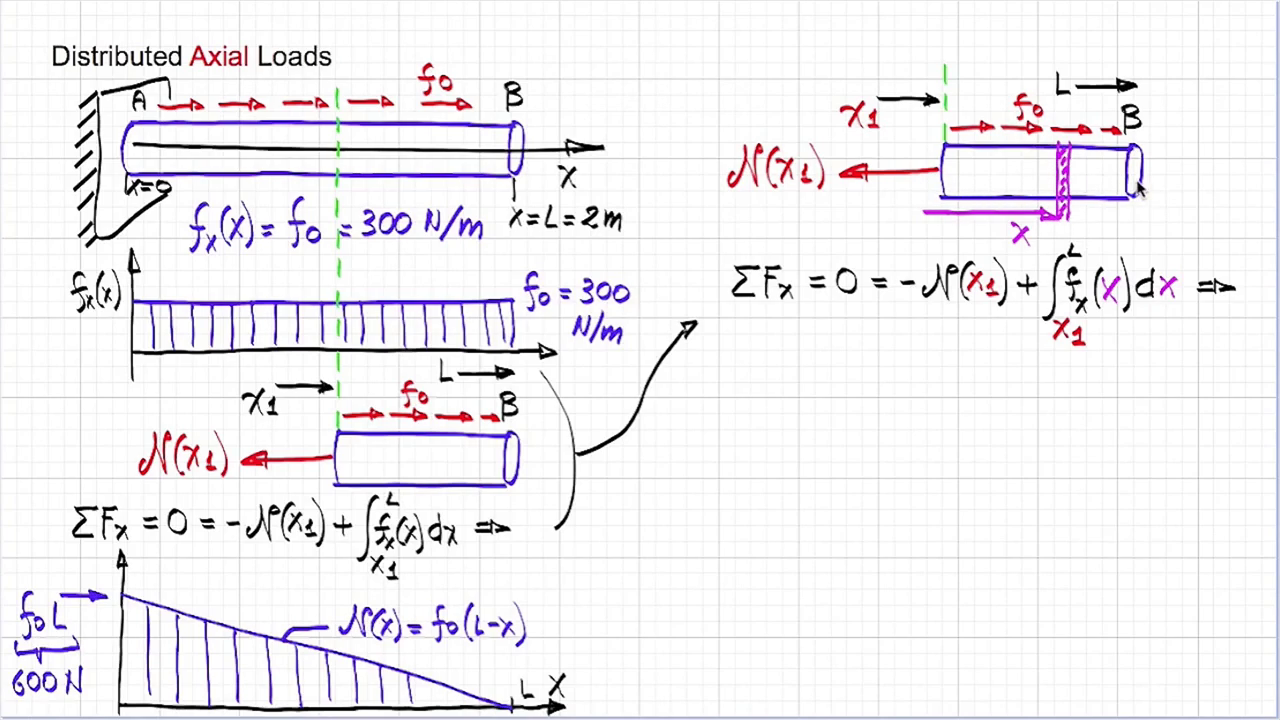 Distributed Axial Loads
A f₀ B
x
x=0
x=L=2m
fₓ(x) = f₀ = 300 N/m
fₓ(x)
f₀ = 300
N/m
L
x₁ f₀ B
N(x₁)
ΣFₓ = 0 = -N(x₁) + ∫ₓ₁ᴸ fₓ(x)dx ⇒
f₀L
600N
N(x) = f₀(L-x)
L x
L
x₁ f₀ B
N(x₁)
x
ΣFₓ = 0 = -N(x₁) + ∫ₓ₁ᴸ fₓ(x)dx ⇒